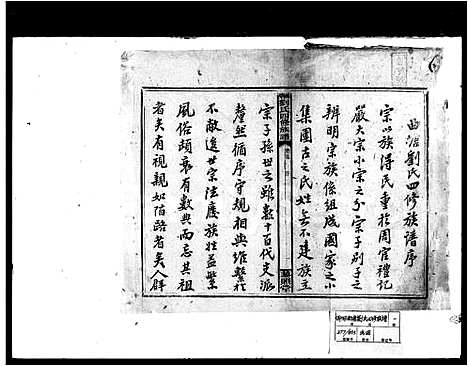 曲澁劉氏四修族譜序
宗以族得民重於周官禮記
嚴大宗小宗之分宗子別子之
辨明宗族係組成國家之小
集團古之氏姓無不建族立
劉氏四修族譜
宗子孫世之雖數十百代支派
釐然循序守規相與維繫於
不敝逮世宗法廢族姓益繁
風俗頹衰有數典而忘其祖
者矣有視親如陌路者矣人群